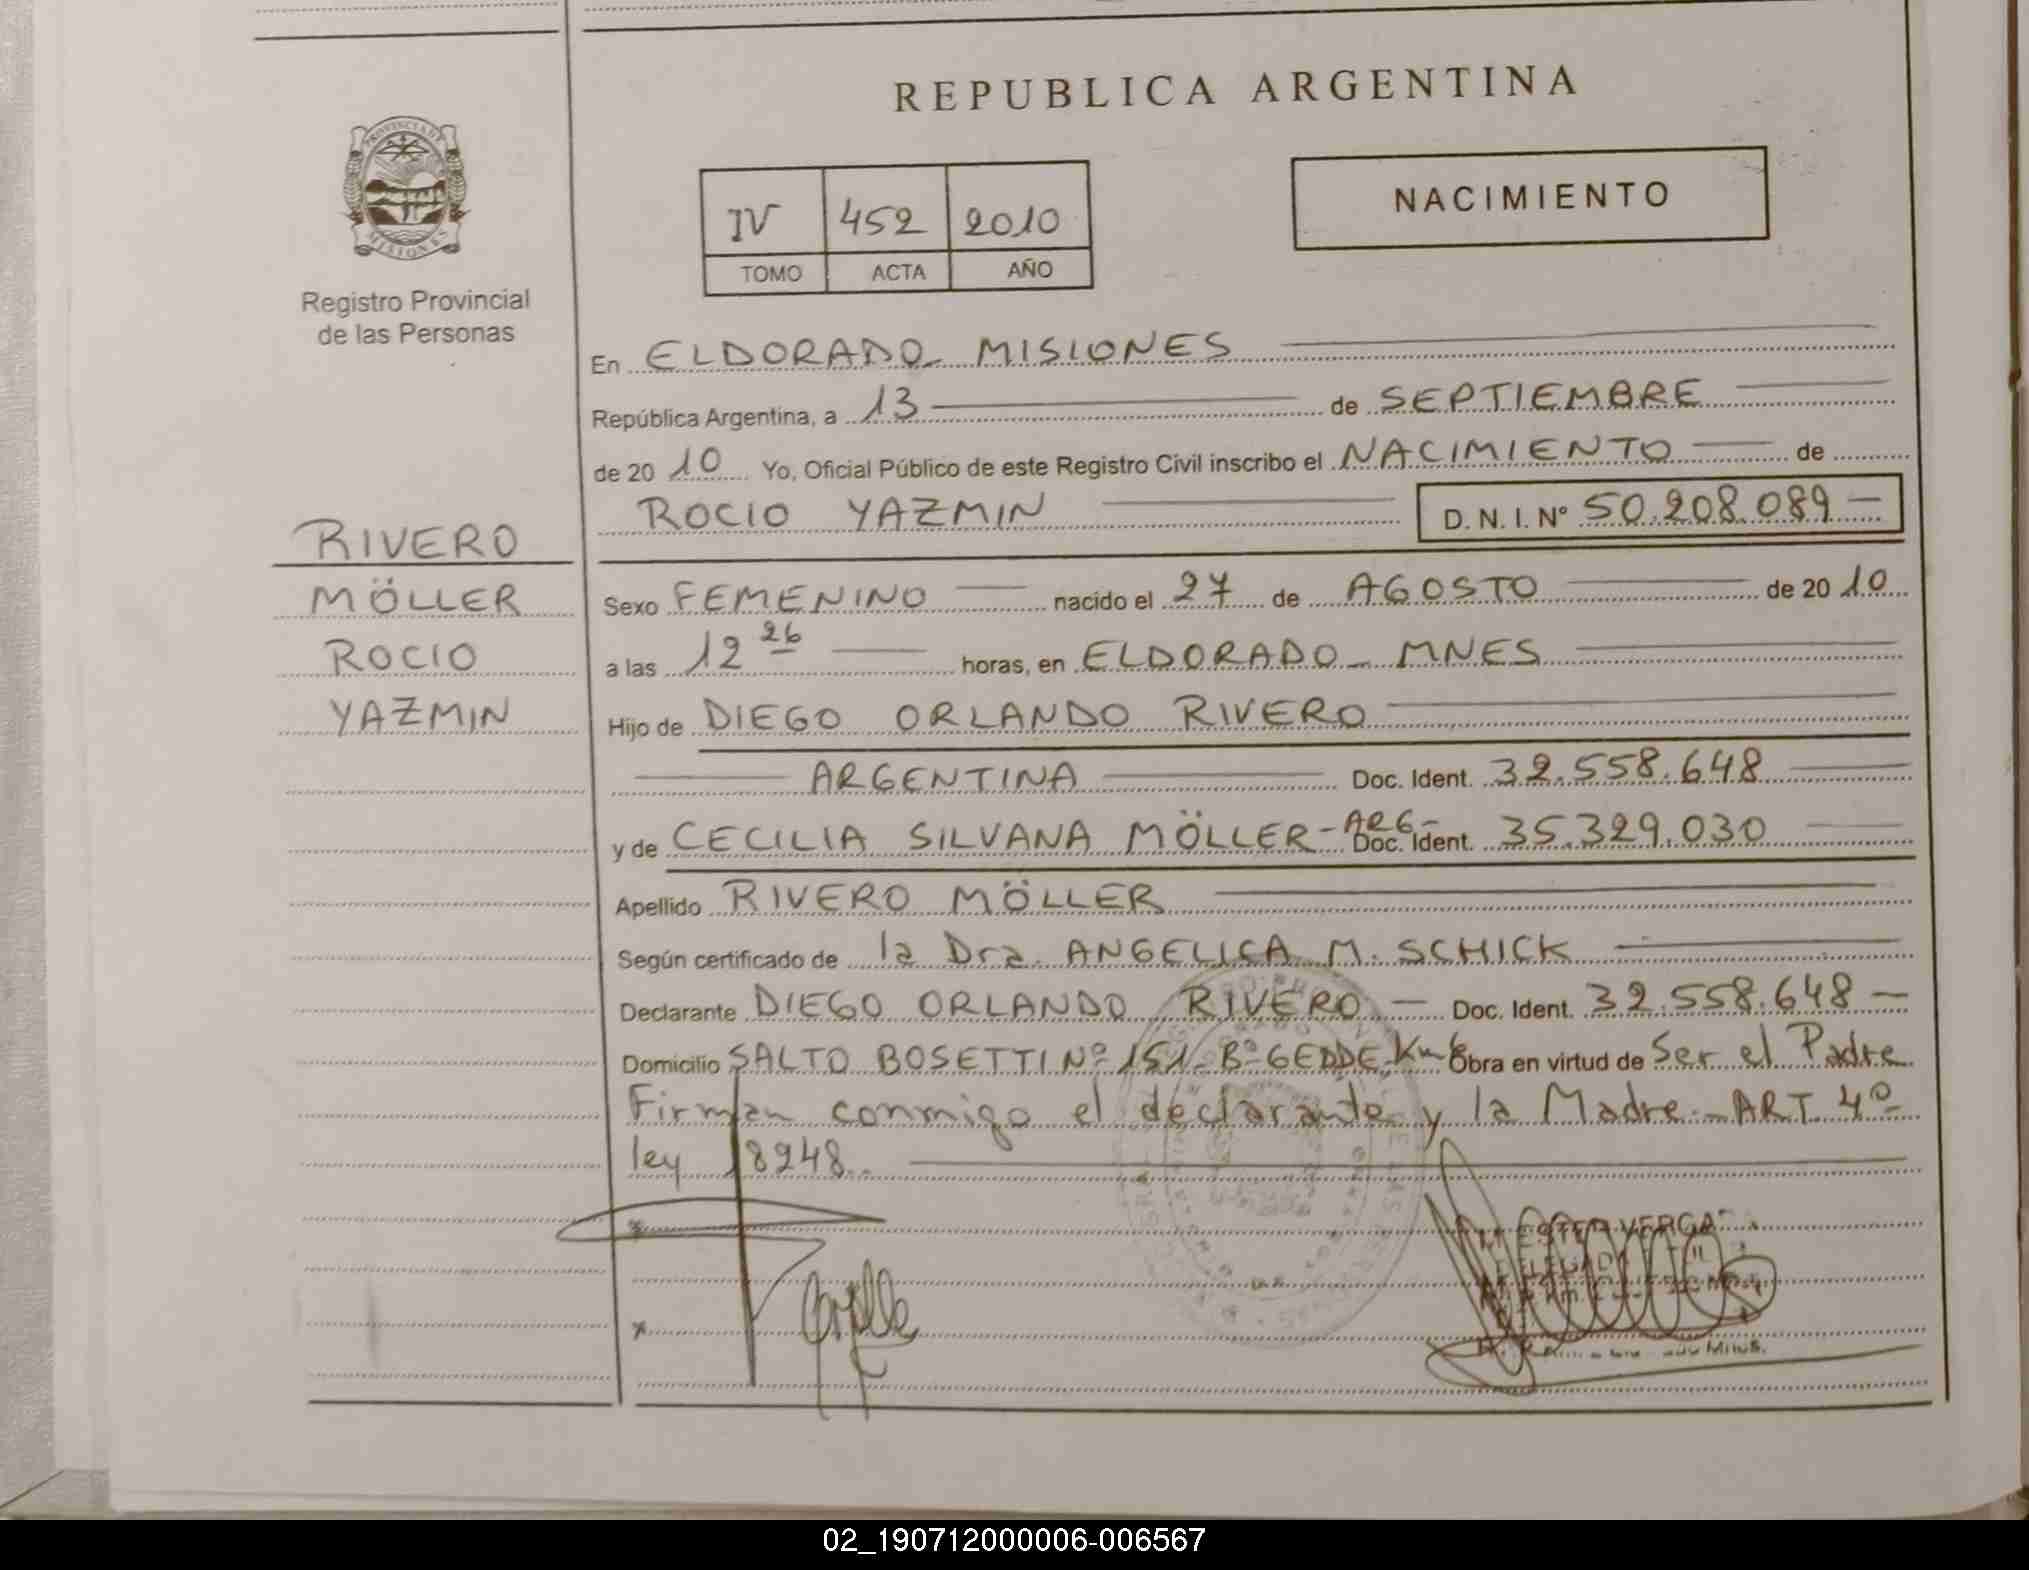 REPUBLICA ARGENTINA
PROVINCIA DE
MISIONES
Registro Provincial
de las Personas
IV 452 2010
TOMO ACTA AÑO
NACIMIENTO
En ELDORADO_ MISIONES
República Argentina, a 13 de SEPTIEMBRE
de 20 10 Yo, Oficial Público de este Registro Civil inscribo el NACIMIENTO de
ROCIO YAZMIN D. N. I. Nº 50.208.089
RIVERO
MÖLLER
ROCIO
YAZMIN
Sexo FEMENINO nacido el 27 de AGOSTO de 20 10
a las 12 26 horas, en ELDORADO_ MNES
Hijo de DIEGO ORLANDO RIVERO
ARGENTINA Doc. Ident. 32.558.648
y de CECILIA SILVANA MÖLLER - ARG- Doc. Ident. 35.329.030
Apellido RIVERO MÖLLER
Según certificado de la Dra. ANGELICA M. SCHICK
Declarante DIEGO ORLANDO RIVERO Doc. Ident. 32.558.648
Domicilio SALTO BOSETTI Nº 151_ Bº GEDDE, Obra en virtud de Ser el Padre
Firman conmigo el declarante y la Madre_ ART 4º
ley 18248.
ESTER
02_190712000006-006567